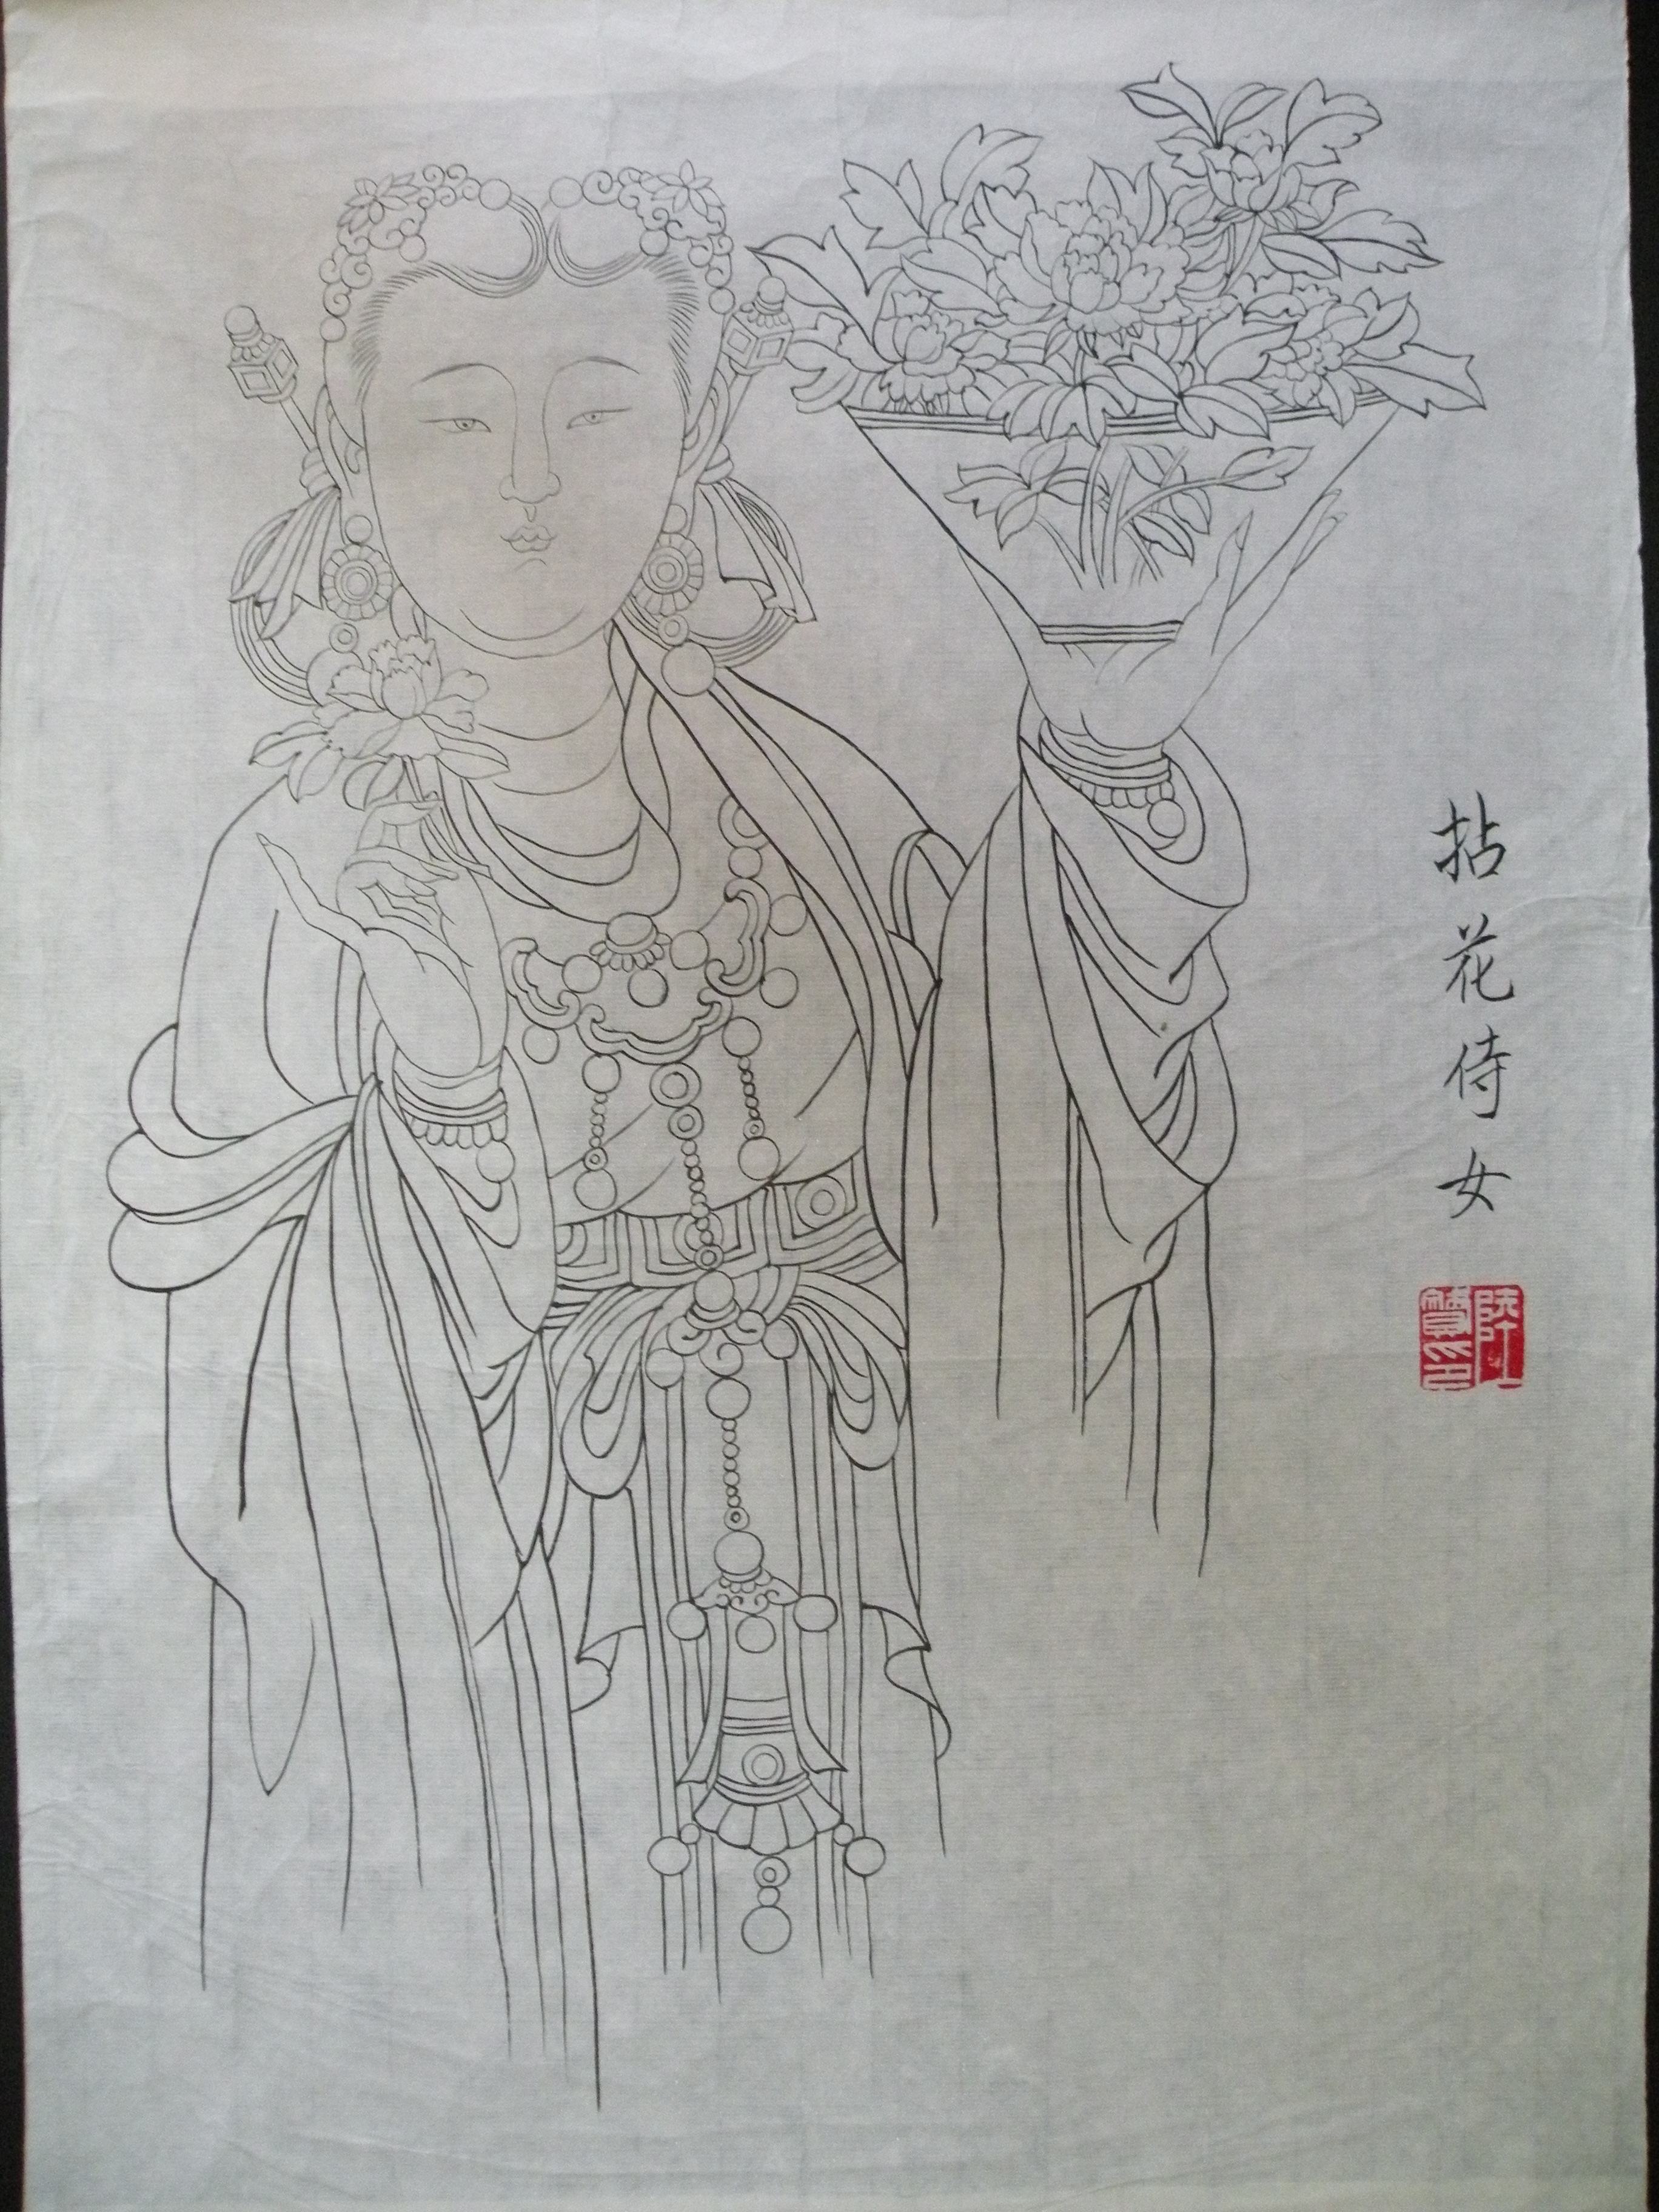 拈花侍女